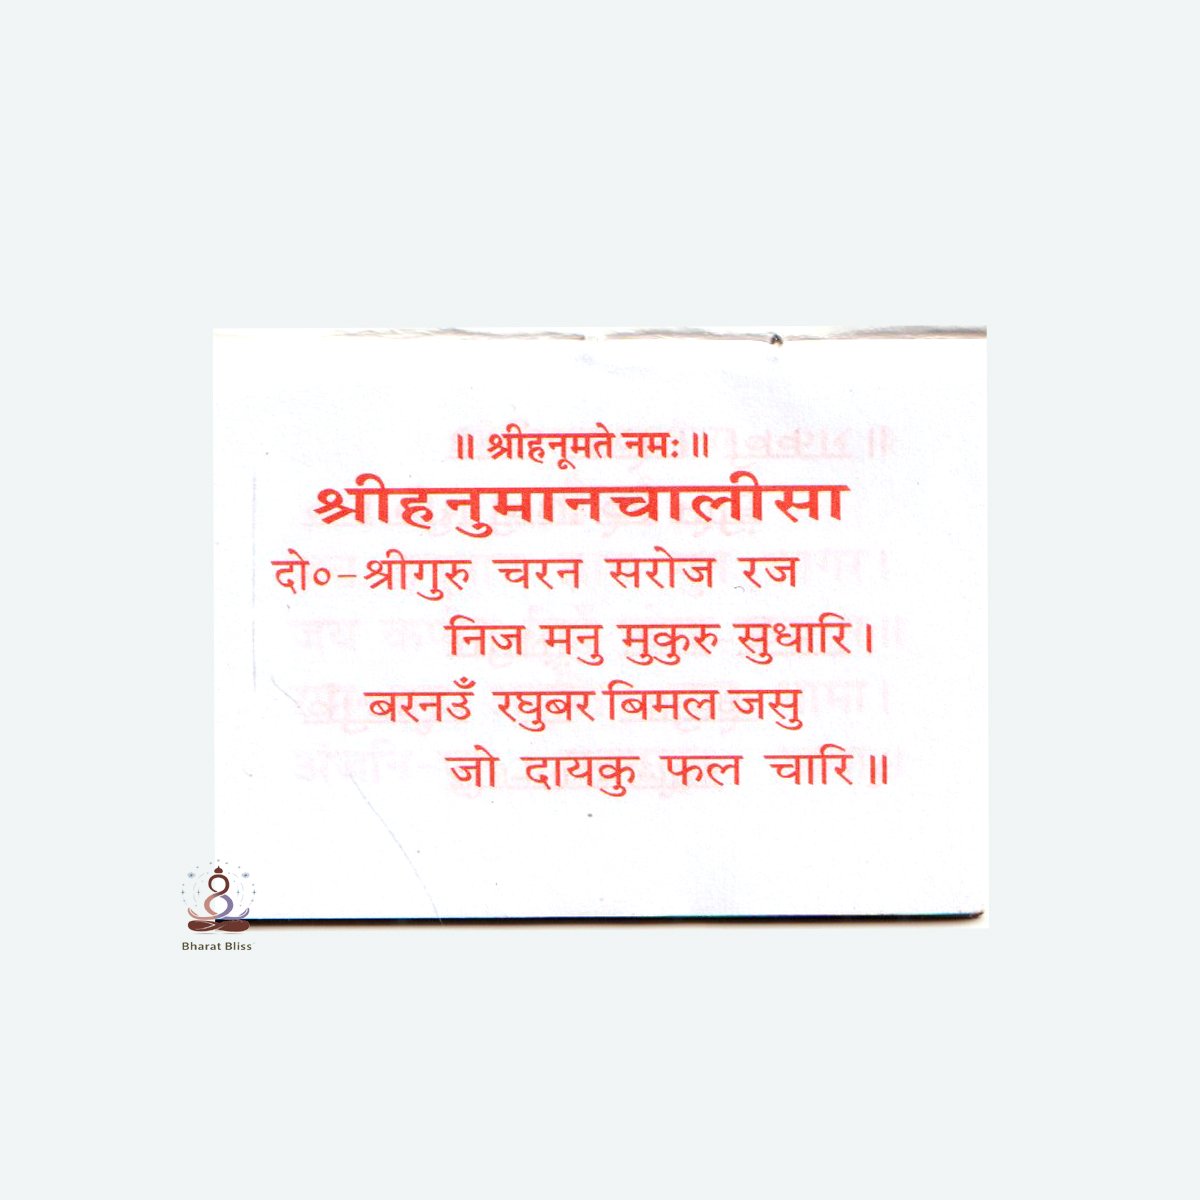 ॥ श्रीहनूमते नमः ॥
श्रीहनुमानचालीसा
दो०–श्रीगुरु चरन सरोज रज
निज मनु मुकुरु सुधारि।
बरनउँ रघुबर बिमल जसु
जो दायकु फल चारि॥
Bharat Bliss